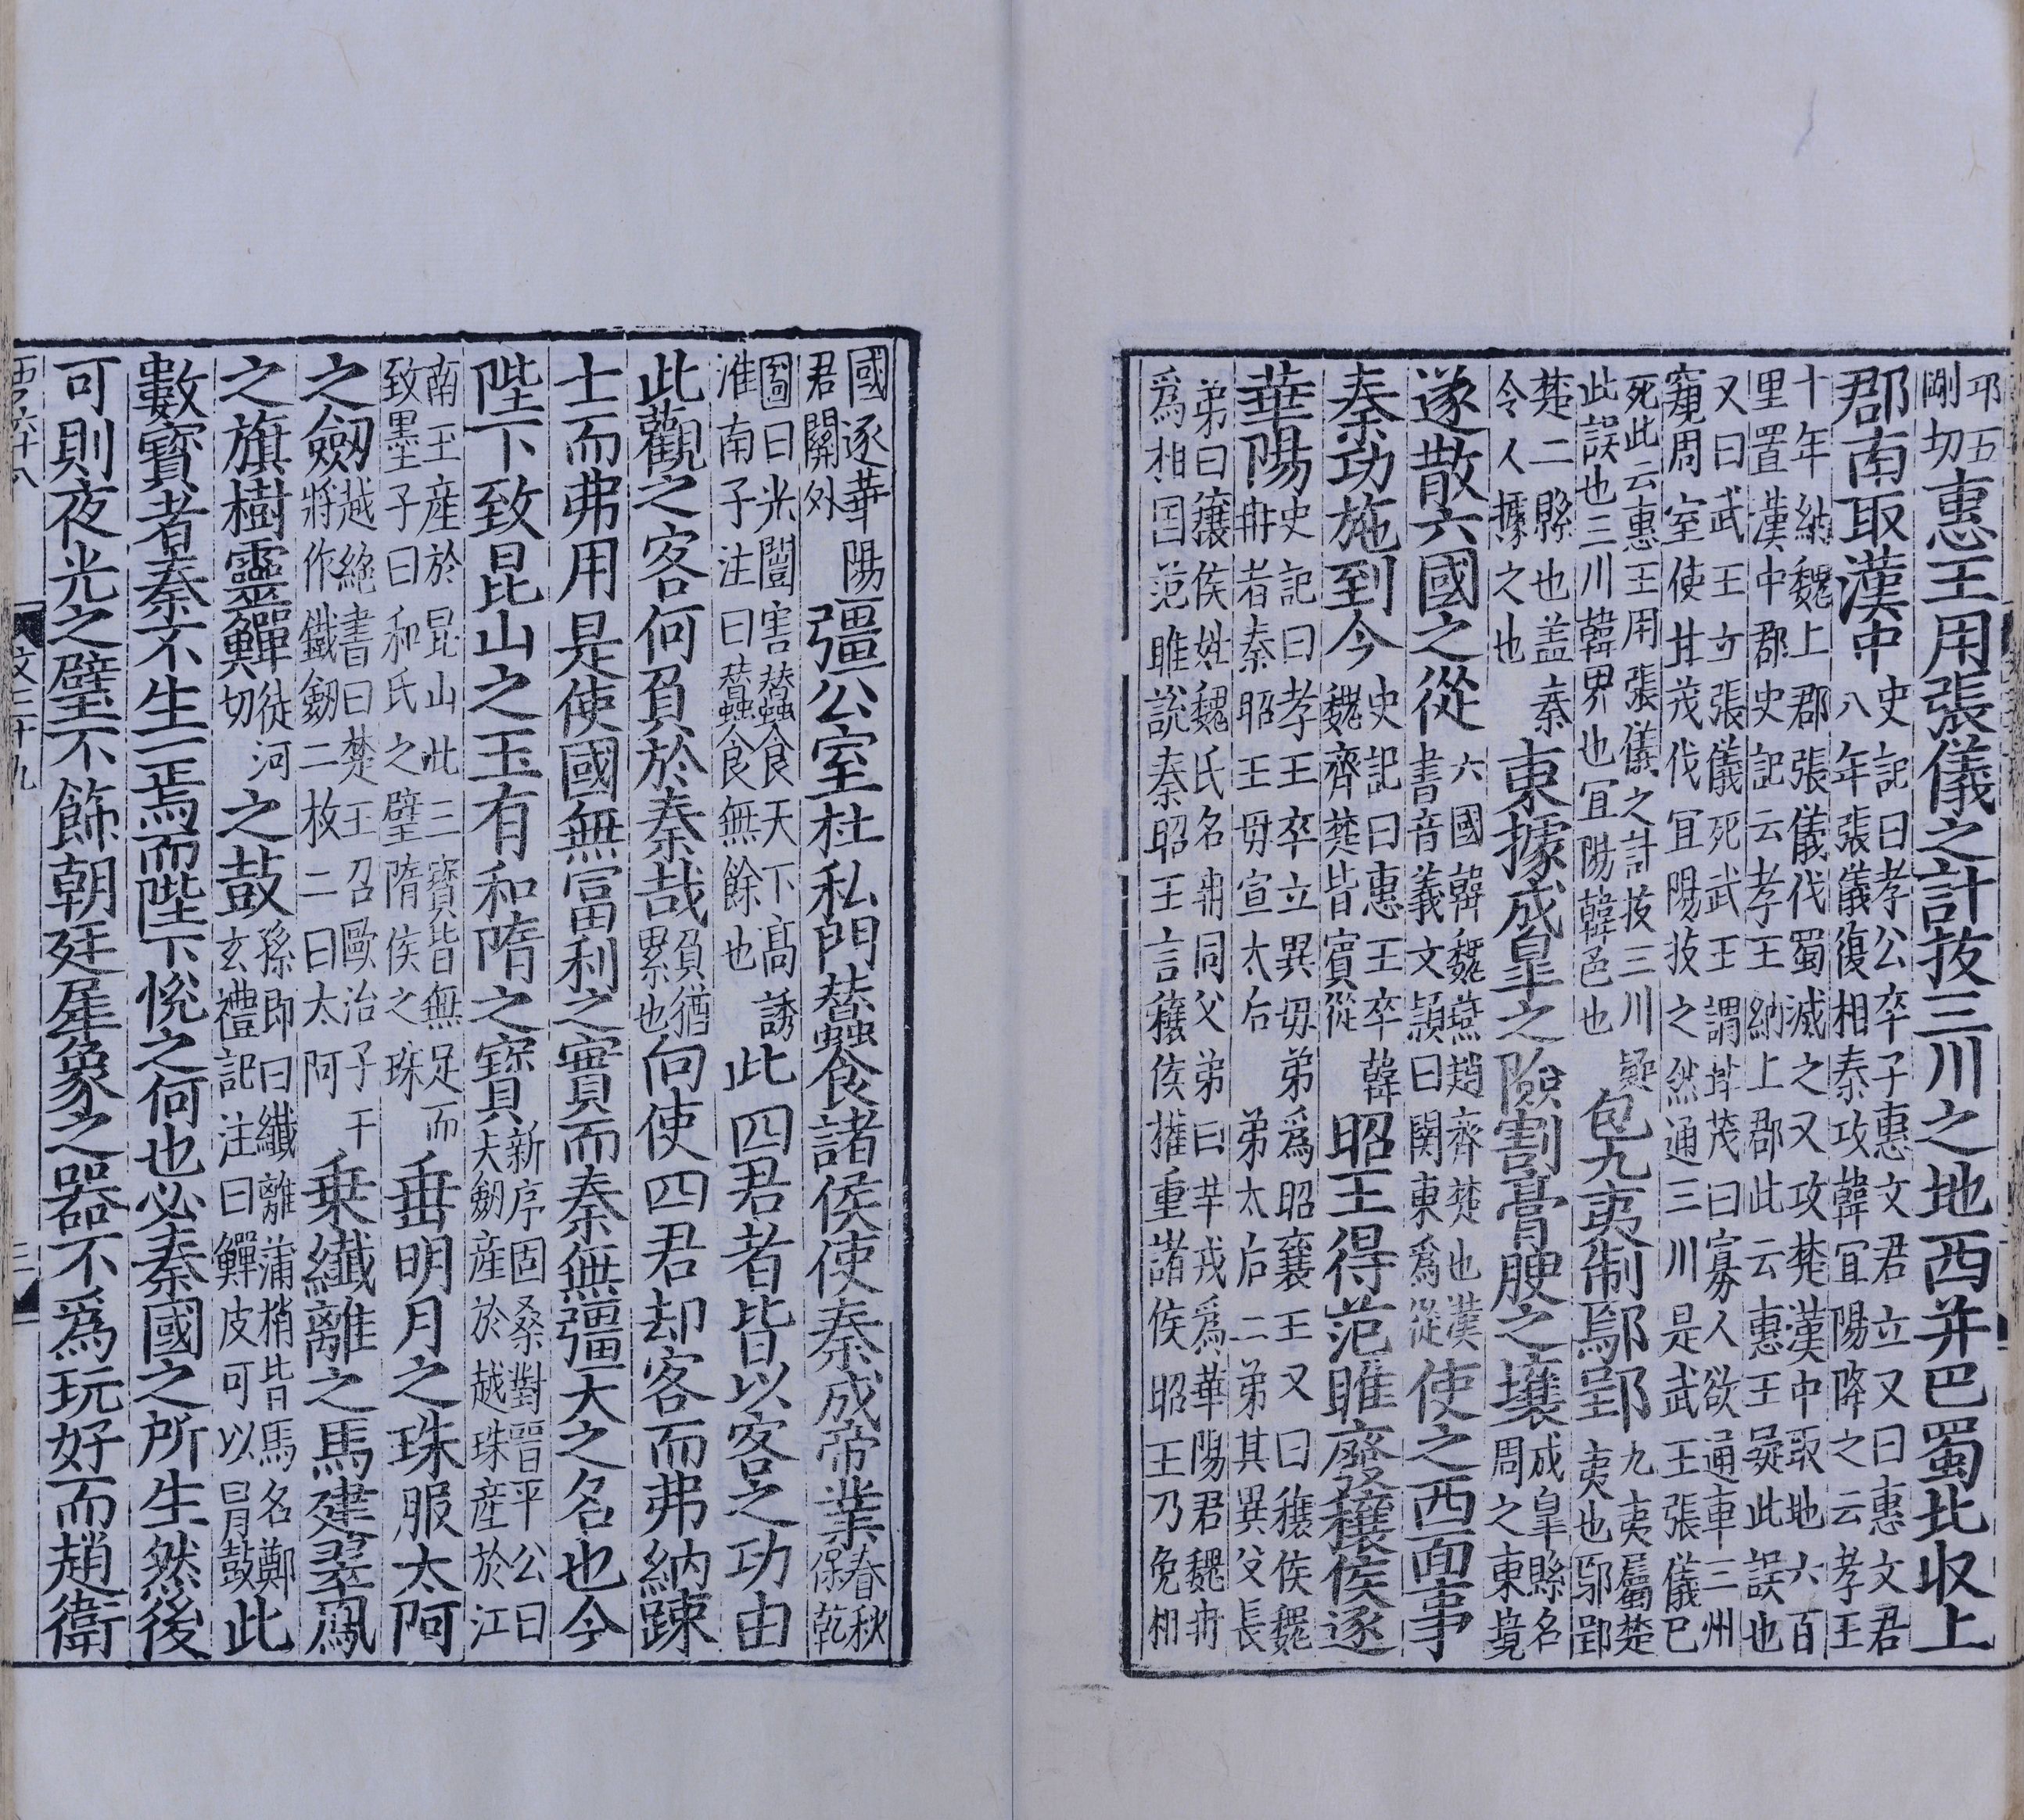 卭五剛切惠王用張儀之計拔三川之地西并巴蜀北収上
郡南取漢中史記曰孝公卒子惠文君立又曰惠文君八年張儀復相秦攻韓冝陽降之云孝王
十年納魏上郡張儀伐蜀滅之又攻楚漢中取地六百里置漢中郡史記云孝王納上郡此云惠王疑此誤也
又曰武王立張儀死武王謂甘茂曰寡人欲通車三州窺周室使甘茂伐冝陽拔之然通三川是武王張儀已
死此云惠王用張儀之計拔三川疑此誤也三川韓界也冝陽韓邑也包九夷制鄢郢九夷屬楚夷也鄢郢
楚二縣也盖秦令人據之也東據成皐之險割膏腴之壤成皐縣名周之東境
遂散六國之從六國韓魏燕趙齊楚也漢書音義文頴曰関東爲從使之西面事
秦功施到今史記曰惠王卒韓魏齊楚皆賔從昭王得范雎廢穰侯逐
華陽史記曰孝王卒立異毋弟爲昭襄王又曰穰侯魏冉者秦昭王毋宣太后弟太后二弟其異父長
弟曰穰侯姓魏氏名冉同父弟曰羋戎爲華陽君魏冉爲相国范雎說秦昭王言穰侯擅重諸侯昭王乃免相
國逐華陽君關外彊公室杜私門蠶食諸侯使秦成帝業春秋保乾
圖曰光闓害蠶食天下高誘淮南子注曰蠶食無餘也此四君者皆以客之功由
此觀之客何負於秦哉負猶累也向使四君却客而弗納踈
士而弗用是使國無冨利之實而秦無彊大之名也今
陛下致昆山之玉有和隋之寶新序固桑對晉平公曰夫劒産於越珠産於江
南玉産於昆山此三寶皆無足而致墨子曰和氏之璧隋侯之珠垂明月之珠服太阿
之劒越絶書曰楚王召歐冶子干將作鐵劒二枚二曰太阿乗纖離之馬建翠鳳
之旗樹靈鼉徒河切之鼓孫卿曰纖離蒲梢皆馬名鄭玄禮記注曰鼉皮可以冒鼓此
數寶者秦不生一焉而陛下悅之何也必秦國之所生然後
可則夜光之璧不飾朝廷犀象之器不爲玩好而趙衛
文三十九